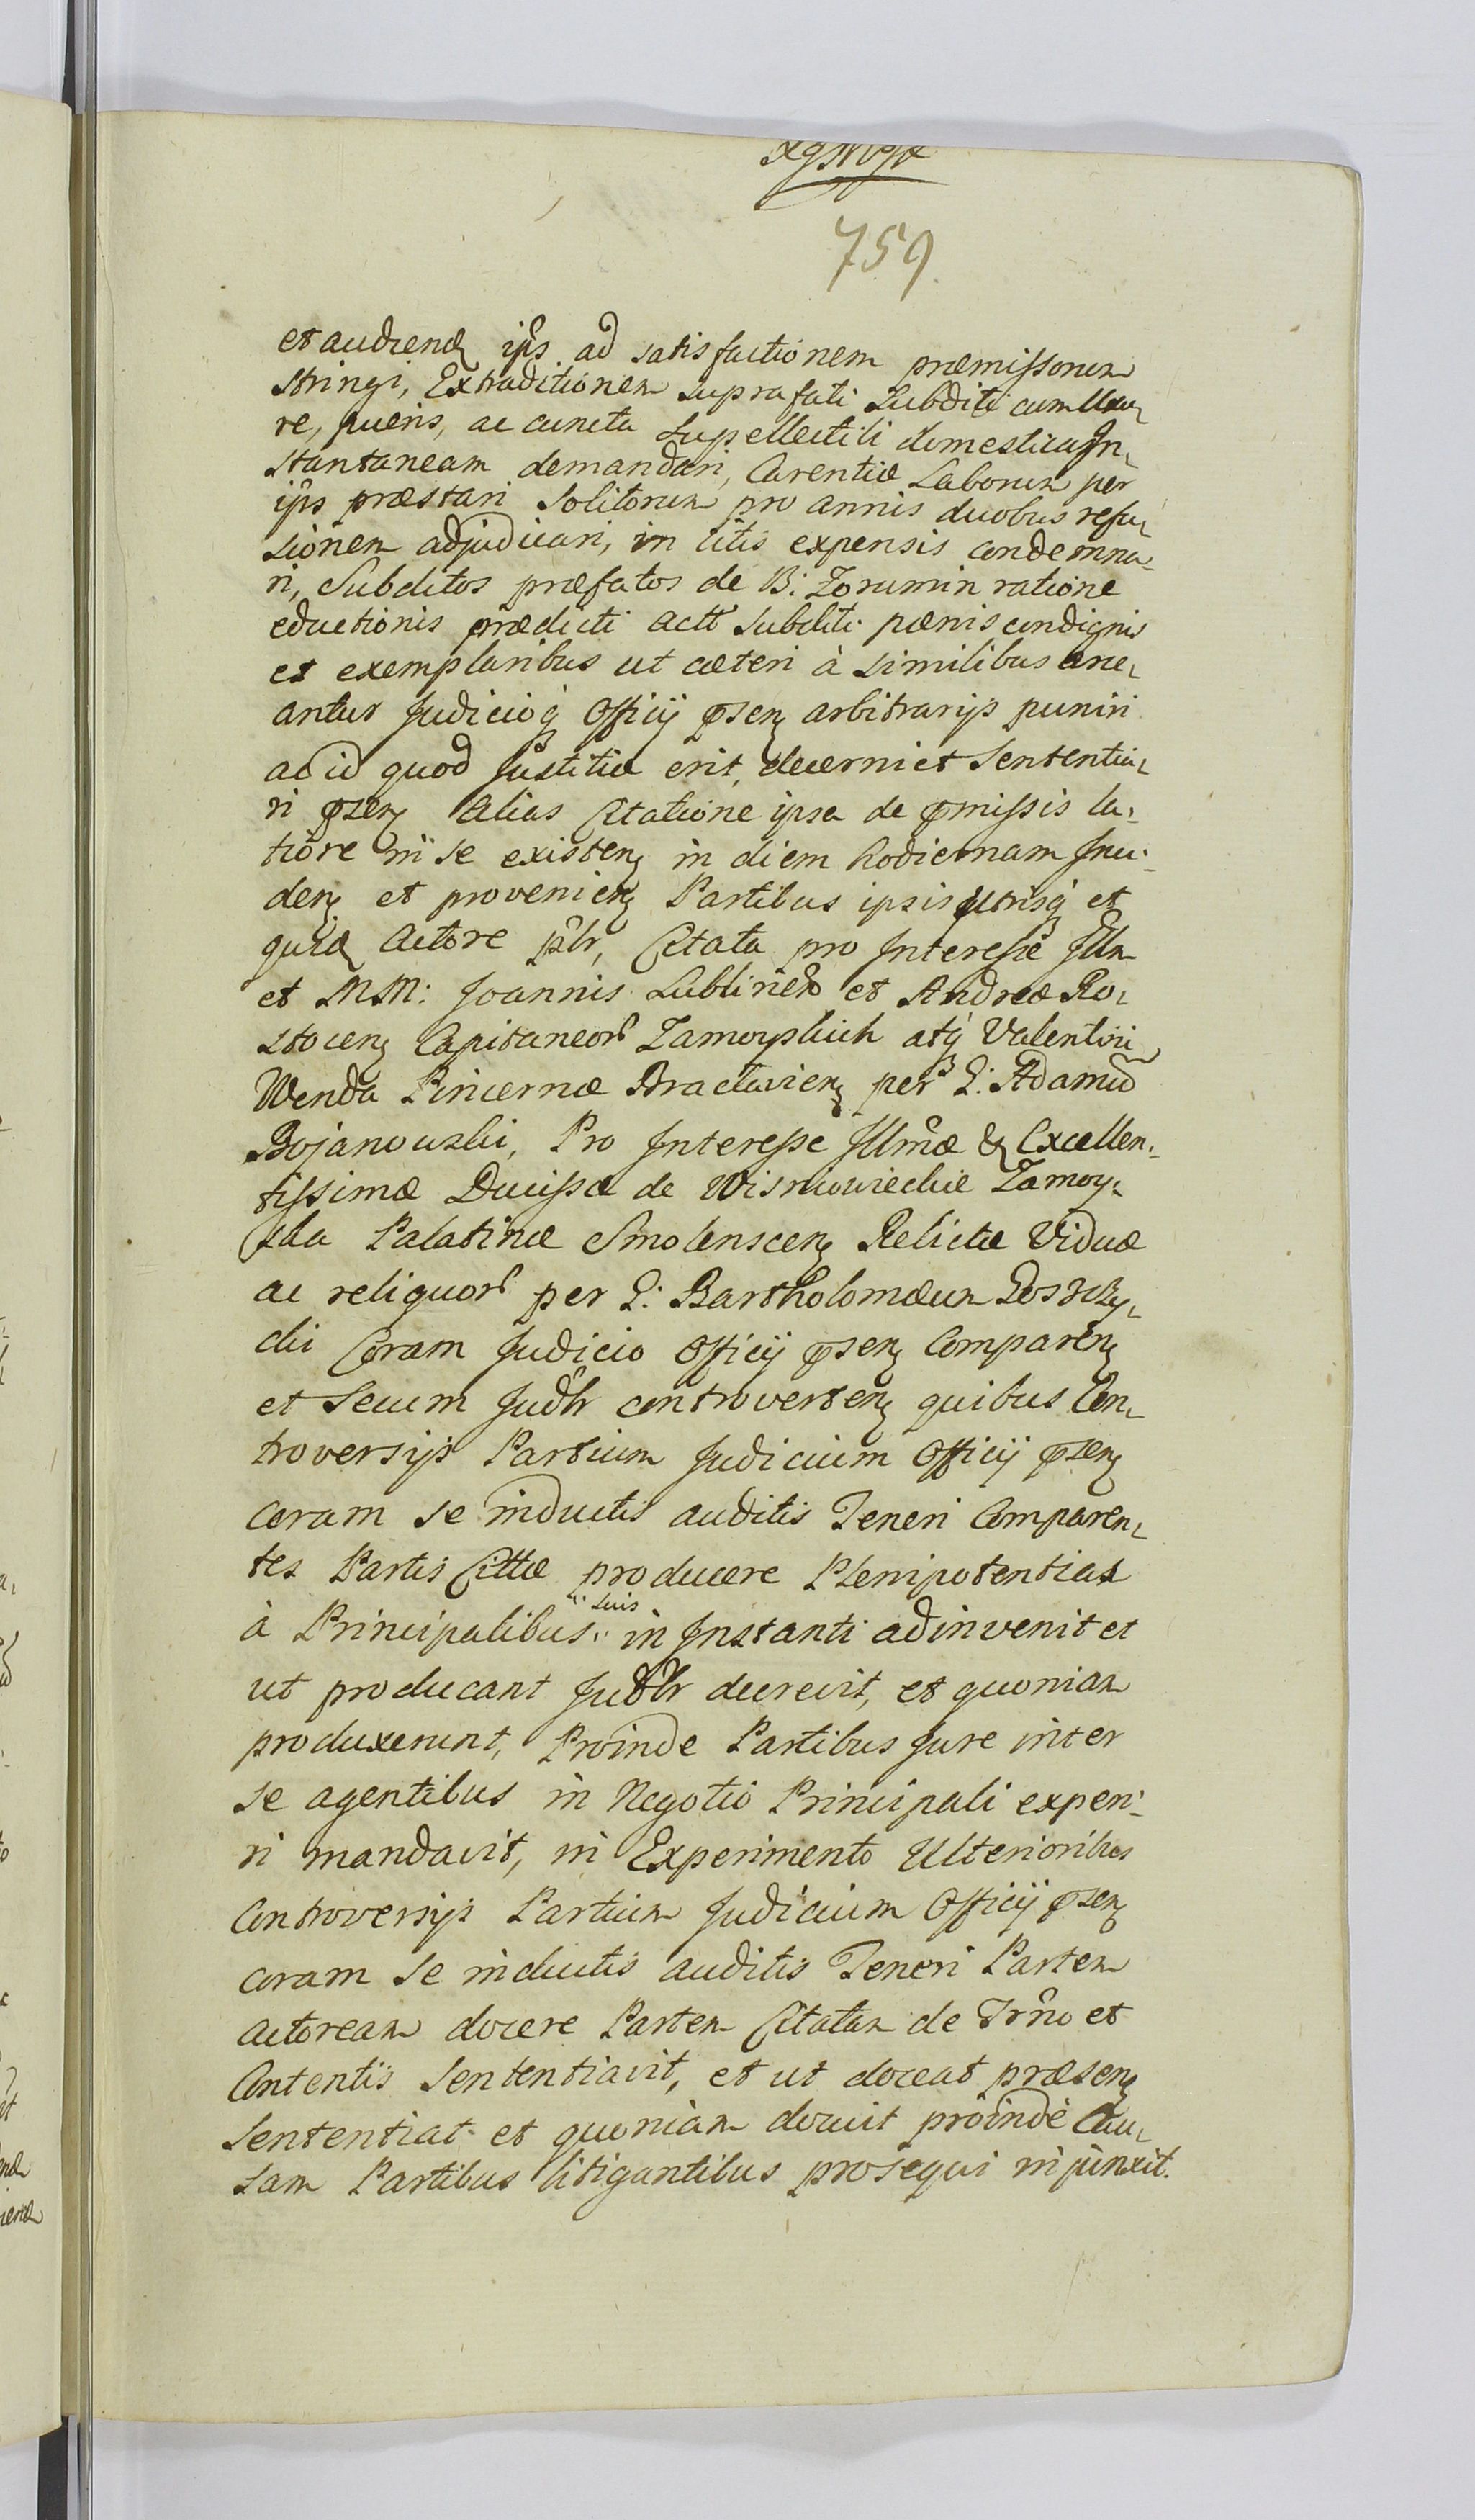 759
et audiend ips ad satisfactionem præmissorum
stringi, Extraditionem suprafati Subditi cum Uxo¬
re, pueris, ac cuncta Supellectili domestica In¬
stantaneam demandari, Carentiæ Laborum per
ips præstari Solitorum pro annis duobus refu¬
sionem adjudicari, in litis expensis condemna¬
ri, Subditos præfatos de B: Torumin ratione
eductionis prædicti actt subditi pœnis condignis
et exemplaribus ut cæteri à similibus arce¬
antur Judicioq Officij psen arbitrarijs puniri
ac id quod Justitiæ erit, decerni et Sententia¬
ri psen Alias Citatione ipsa de pmissis la¬
tiore in se existen in diem hodiernam Inci¬
den et provenien Partibus ipsis utrisq et
quid Actore plr, Citata pro Interesse Illm
et MM: Joannis Lublinen et Andreæ Ro¬
stocen Capitaneor Zamoyskich atq Valentini
Wenda Pincernæ Braclavien per G: Adamu
Bojanowski, Pro Interesse Illmæ & Excellen¬
tissimæ Ducissæ de Wisniowieckie Zamoy¬
ska Palatinæ Smolenscen Relictæ Viduæ
ac reliquor per G: Bartholomæum
cki Coram Judicio Officij psen Comparen
et Secum Judlr controverten quibus Con¬
troversijs Partium Judicium Officij psen
coram se inductis auditis Teneri Comparen¬
tes Partis Cittæ producere Plenipotentias
à Principalibus suis in Instanti adinvenit et
ut producant Judlr decrevit, et quoniam
produxerunt, Proinde Partibus Jure inter
se agentibus in Negotio Principali experi¬
ri mandavit, in Experimento Ulterioribus
Controversijs Partium Judicium Officij psen
coram se inductis auditis Teneri Partem
actoream docere Partem Citatam de Trno et
Contentis Sententiavit, et ut doceat præsen
Sententiat et quoniam docuit proinde Cau¬
sam Partibus litigantibus prosequi injunxit.